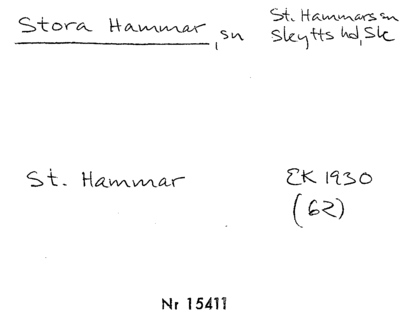 Stora Hammar, sn
St. Hammars sn
Skytts hd, Sk
St. Hammar
EK 1930
(62)
Nr 15411